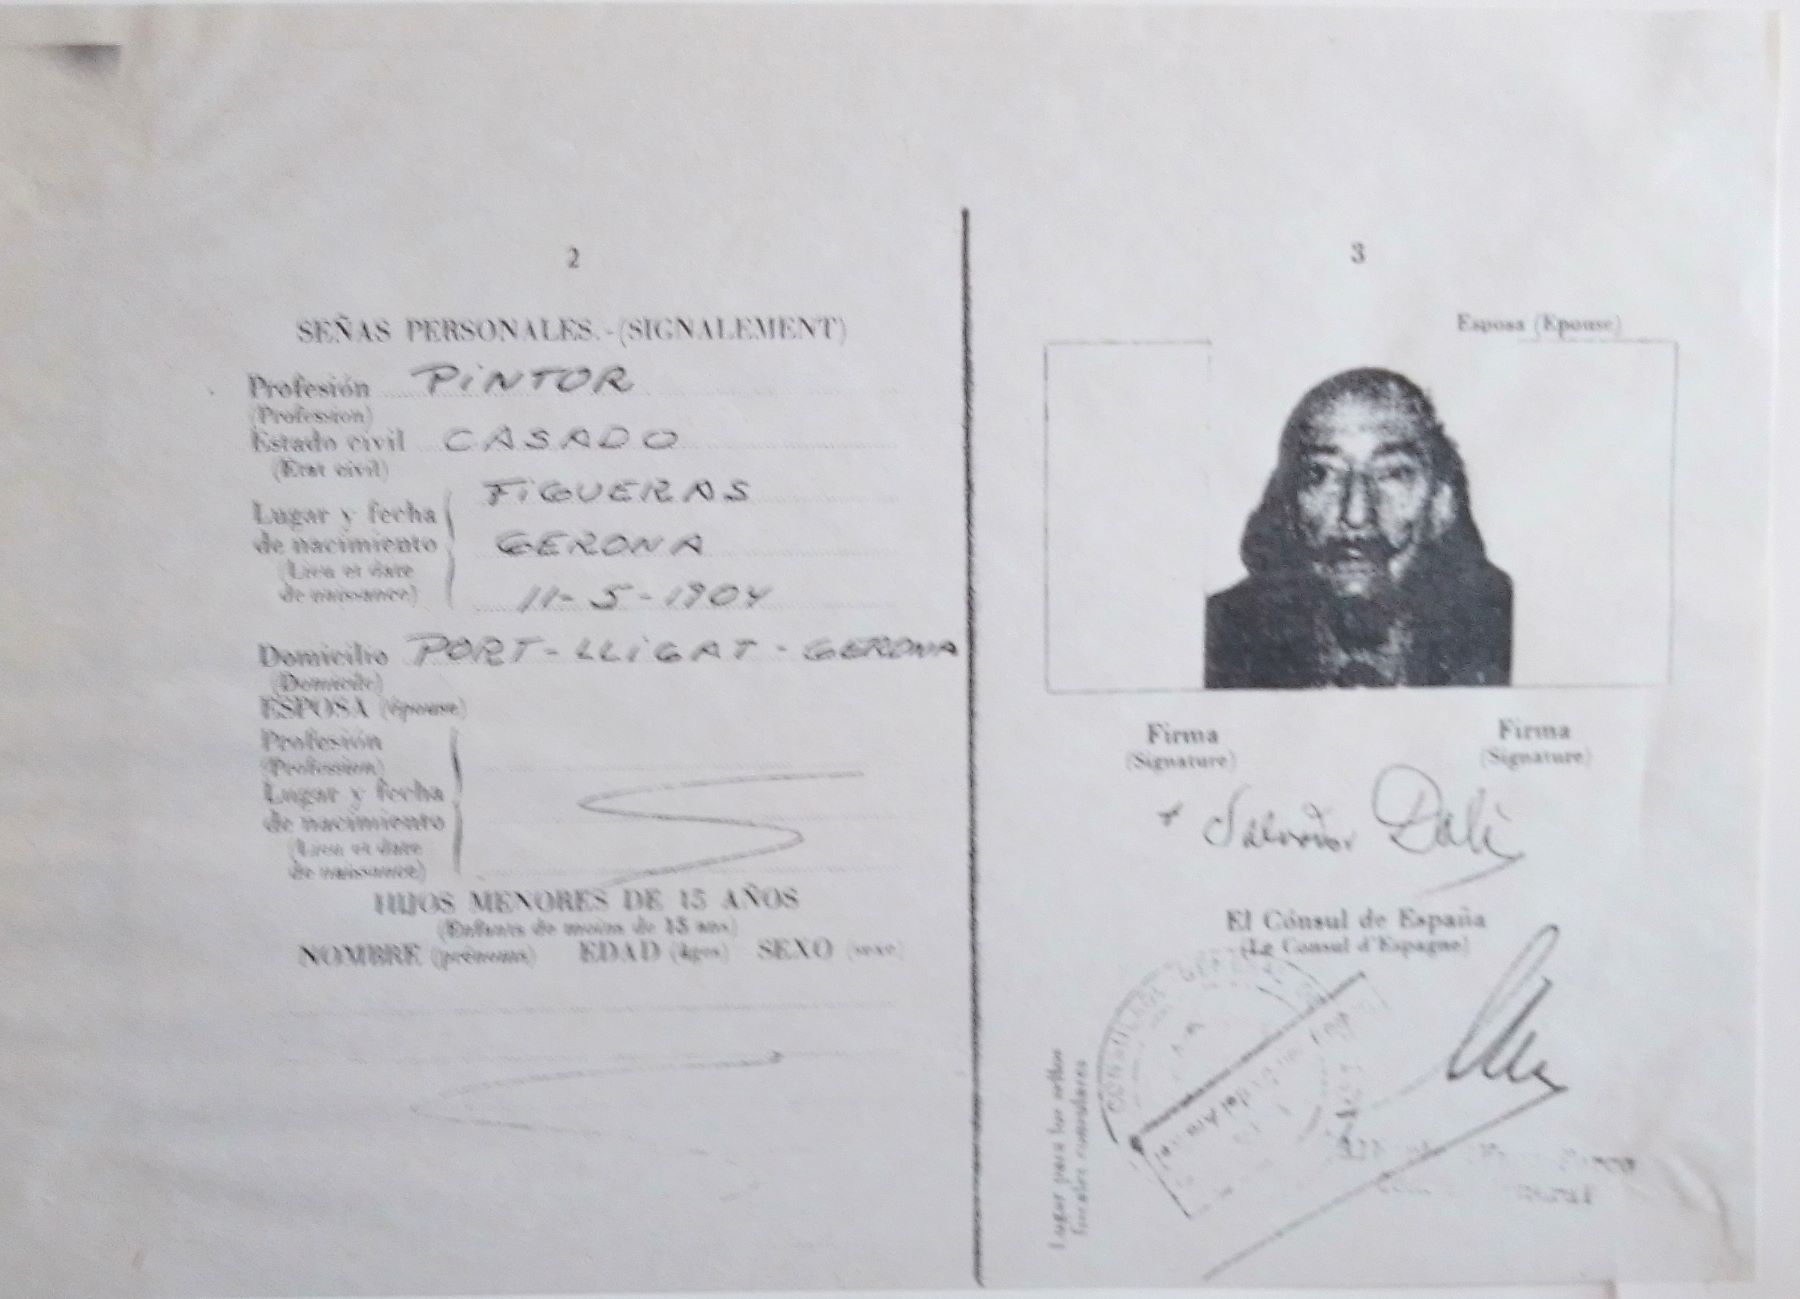 2
SEÑAS PERSONALES.-(SIGNALEMENT)
Profesión PiNTOR
(Profession)
Estado civil CASADO
(Etat civil)
FiGUERAS
Lugar y fecha
de nacimiento GERONA
(Lieu et date
de naissance) 11-5-1904
Domicilio PORT-LLiGAT-GERONA
(Domicile)
ESPOSA (épouse)
Profesión
(Profession)
Lugar y fecha
de nacimiento
(Lieu et date
de naissance)
HIJOS MENORES DE 15 AÑOS
(Enfants de moins de 15 ans)
NOMBRE (prénoms) EDAD (âges) SEXO (sexe)
3
Esposa (Epouse)
Firma Firma
(Signature) (Signature)
Salvador Dalí
El Cónsul de España
(Le Consul d'Espagne)
CONSULADO GENERAL
Lugar para los sellos
fiscales consulares